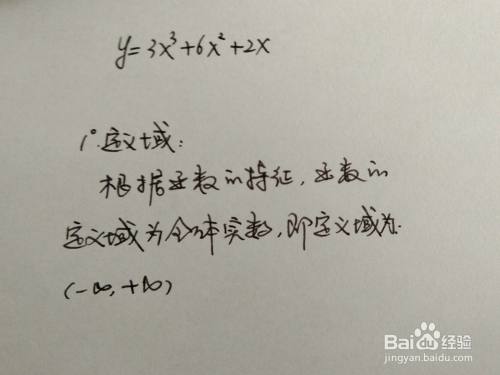 y=3x³+6x²+2x
1°.定义域：
根据函数的特征，函数的
定义域为全体实数，即定义域为.
(-∞,+∞)
Baidu经验
jingyan.baidu.com